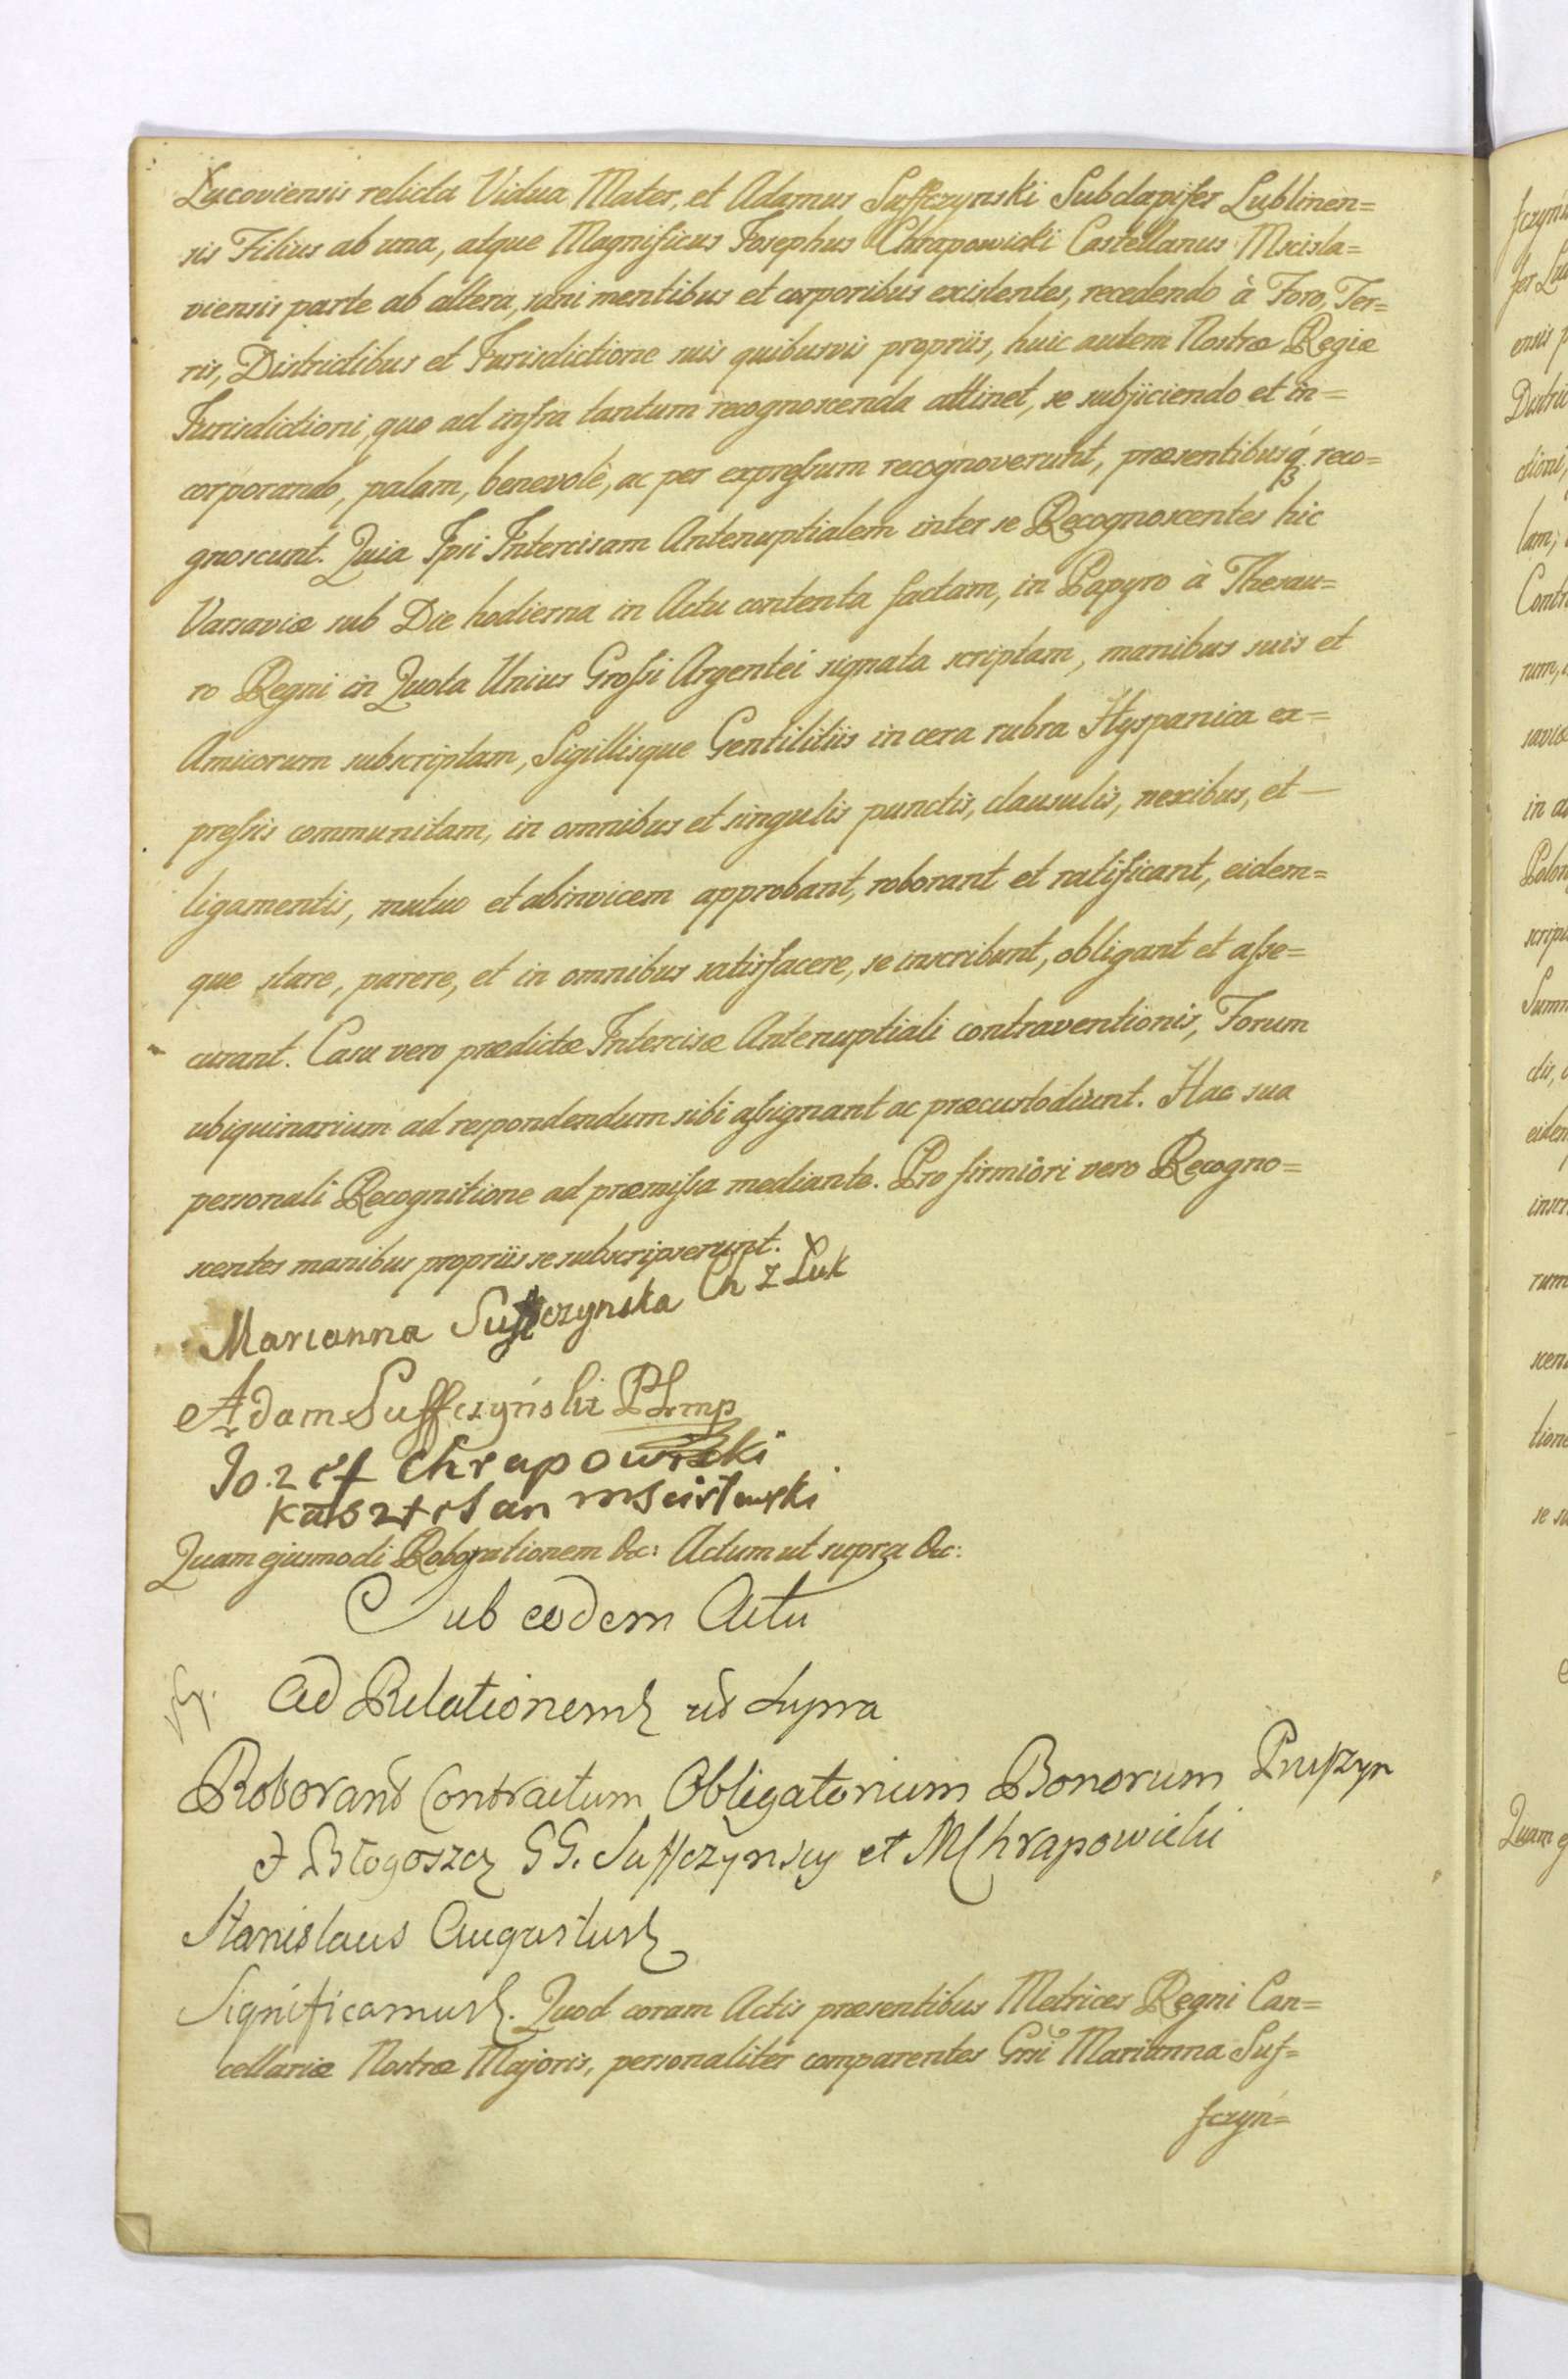 Lucoviensis relicta Vidua Mater, et Adamus Suffczynski Subdapifer Lublinen=
sis Filius ab una, atque Magnificus Josephus Chrapowicki Castellanus Mscisla=
viensis parte ab altera, sani mentibus et corporibus existentes, recedendo à Foro, Ter=
ris, Districtibus et Jurisdictione suis quibusvis propriis, huic autem Nostræ Regiæ
Jurisdictioni, quo ad infra tantum recognoscenda attinet, se subjiciendo et in=
corporando, palam, benevolè, ac per expreſsum recognoverunt, præsentibusq́ reco=
gnoscunt. Quia Ipsi Intercisam Antenuptialem inter se Recognoscentes hic
Varsaviæ sub Die hodierna in Actu contenta factam, in Papyro à Thesau=
ro Regni in Quota Unius Groſsi Argentei signata scriptam, manibus suis et
Amicorum subscriptam, Sigillisque Gentilitiis in cera rubra Hyspanica ex=
preſsis communitam, in omnibus et singulis punctis, clausulis, nexibus, et —
ligamentis, mutuo et abinvicem approbant, roborant et ratificant, eidem=
que stare, parere, et in omnibus satisfacere, se inscribunt, obligant et aſse=
curant. Casu vero prædictæ Intercisæ Antenuptiali contraventionis, Forum
ubiquinarium ad respondendum sibi aſsignant ac præcustodiunt. Hac sua
personali Recognitione ad præmiſsa mediante. Pro firmiori vero Recogno=
scentes manibus propriis se subscripserunt.
Marianna Suffczynska Ch Z Łuk
Adam Suffczyński PLmp
Jozef Chrapowicki
Kasztelan mscisławski
Quam ejusmodi Roborationem &c: Actum ut supra &c:
Sub eodem Actu
Ad Relationem ut supra
Roborant Contractum Obligatorium Bonorum Pruszyn
et Błogoszcz GG. Suffczynscy et M Chrapowicki
Stanislaus Augustus
Significamus. Quod coram Actis præsentibus Metrices Regni Can=
cellariæ Nostræ Majoris, personaliter comparentes Gnsi Marianna Suf=
fczyń=